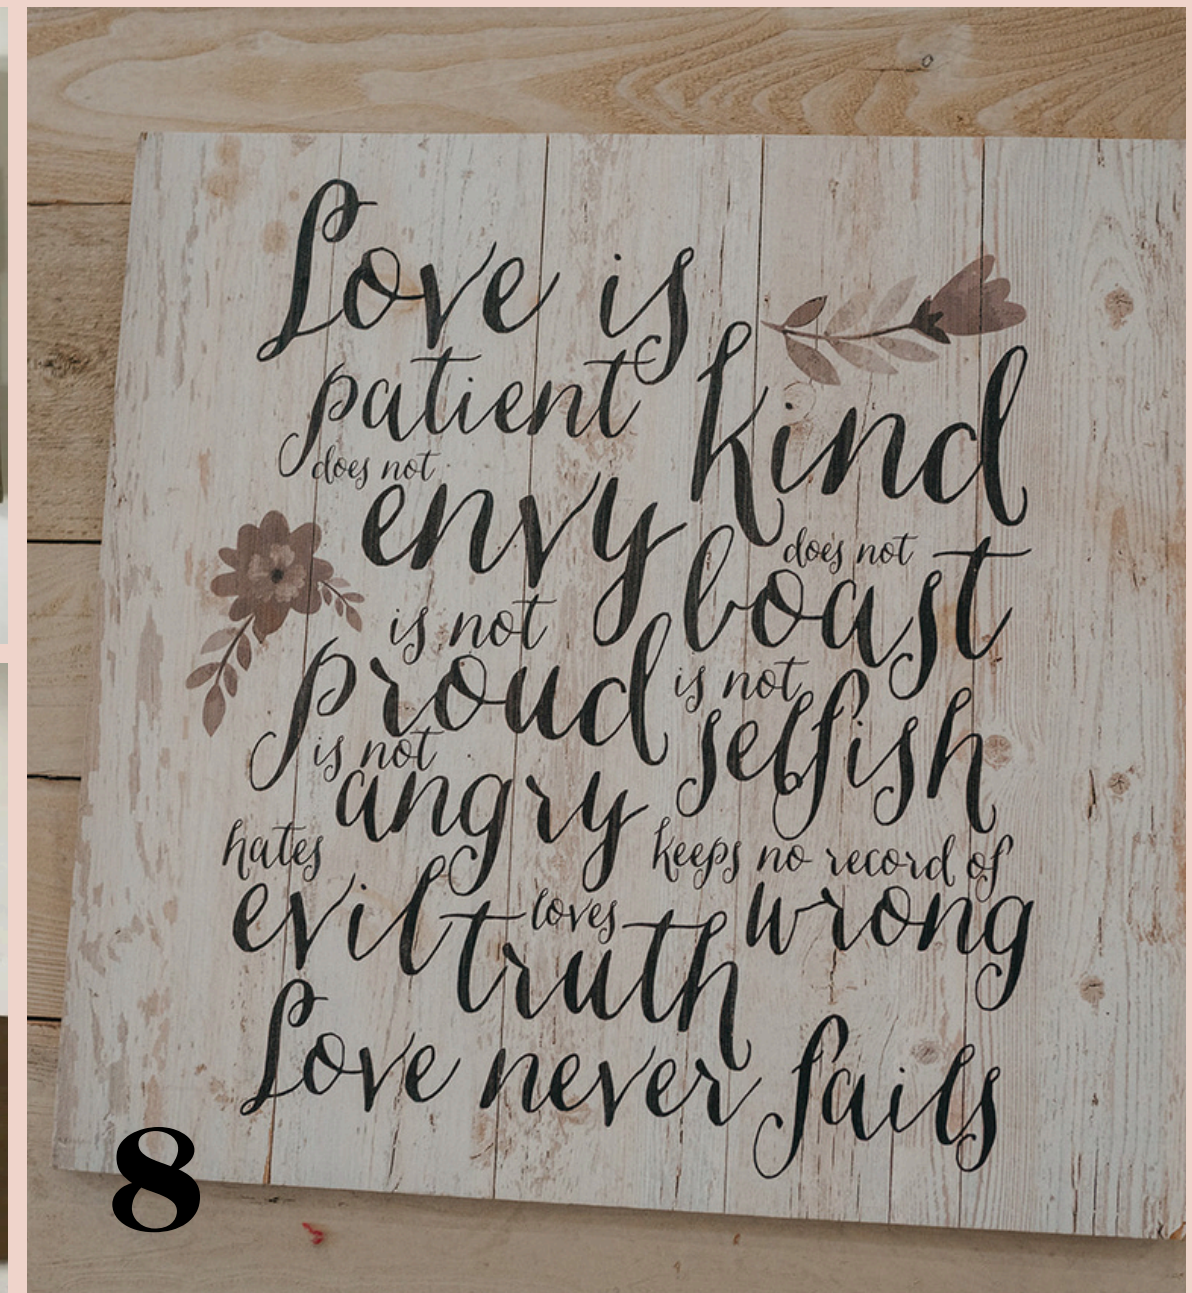 Love is
patient
kind
does not
envy
does not
boast
is not
proud
is not
selfish
is not
angry
keeps no record of
wrong
hates
evil
loves
truth
Love never fails
8